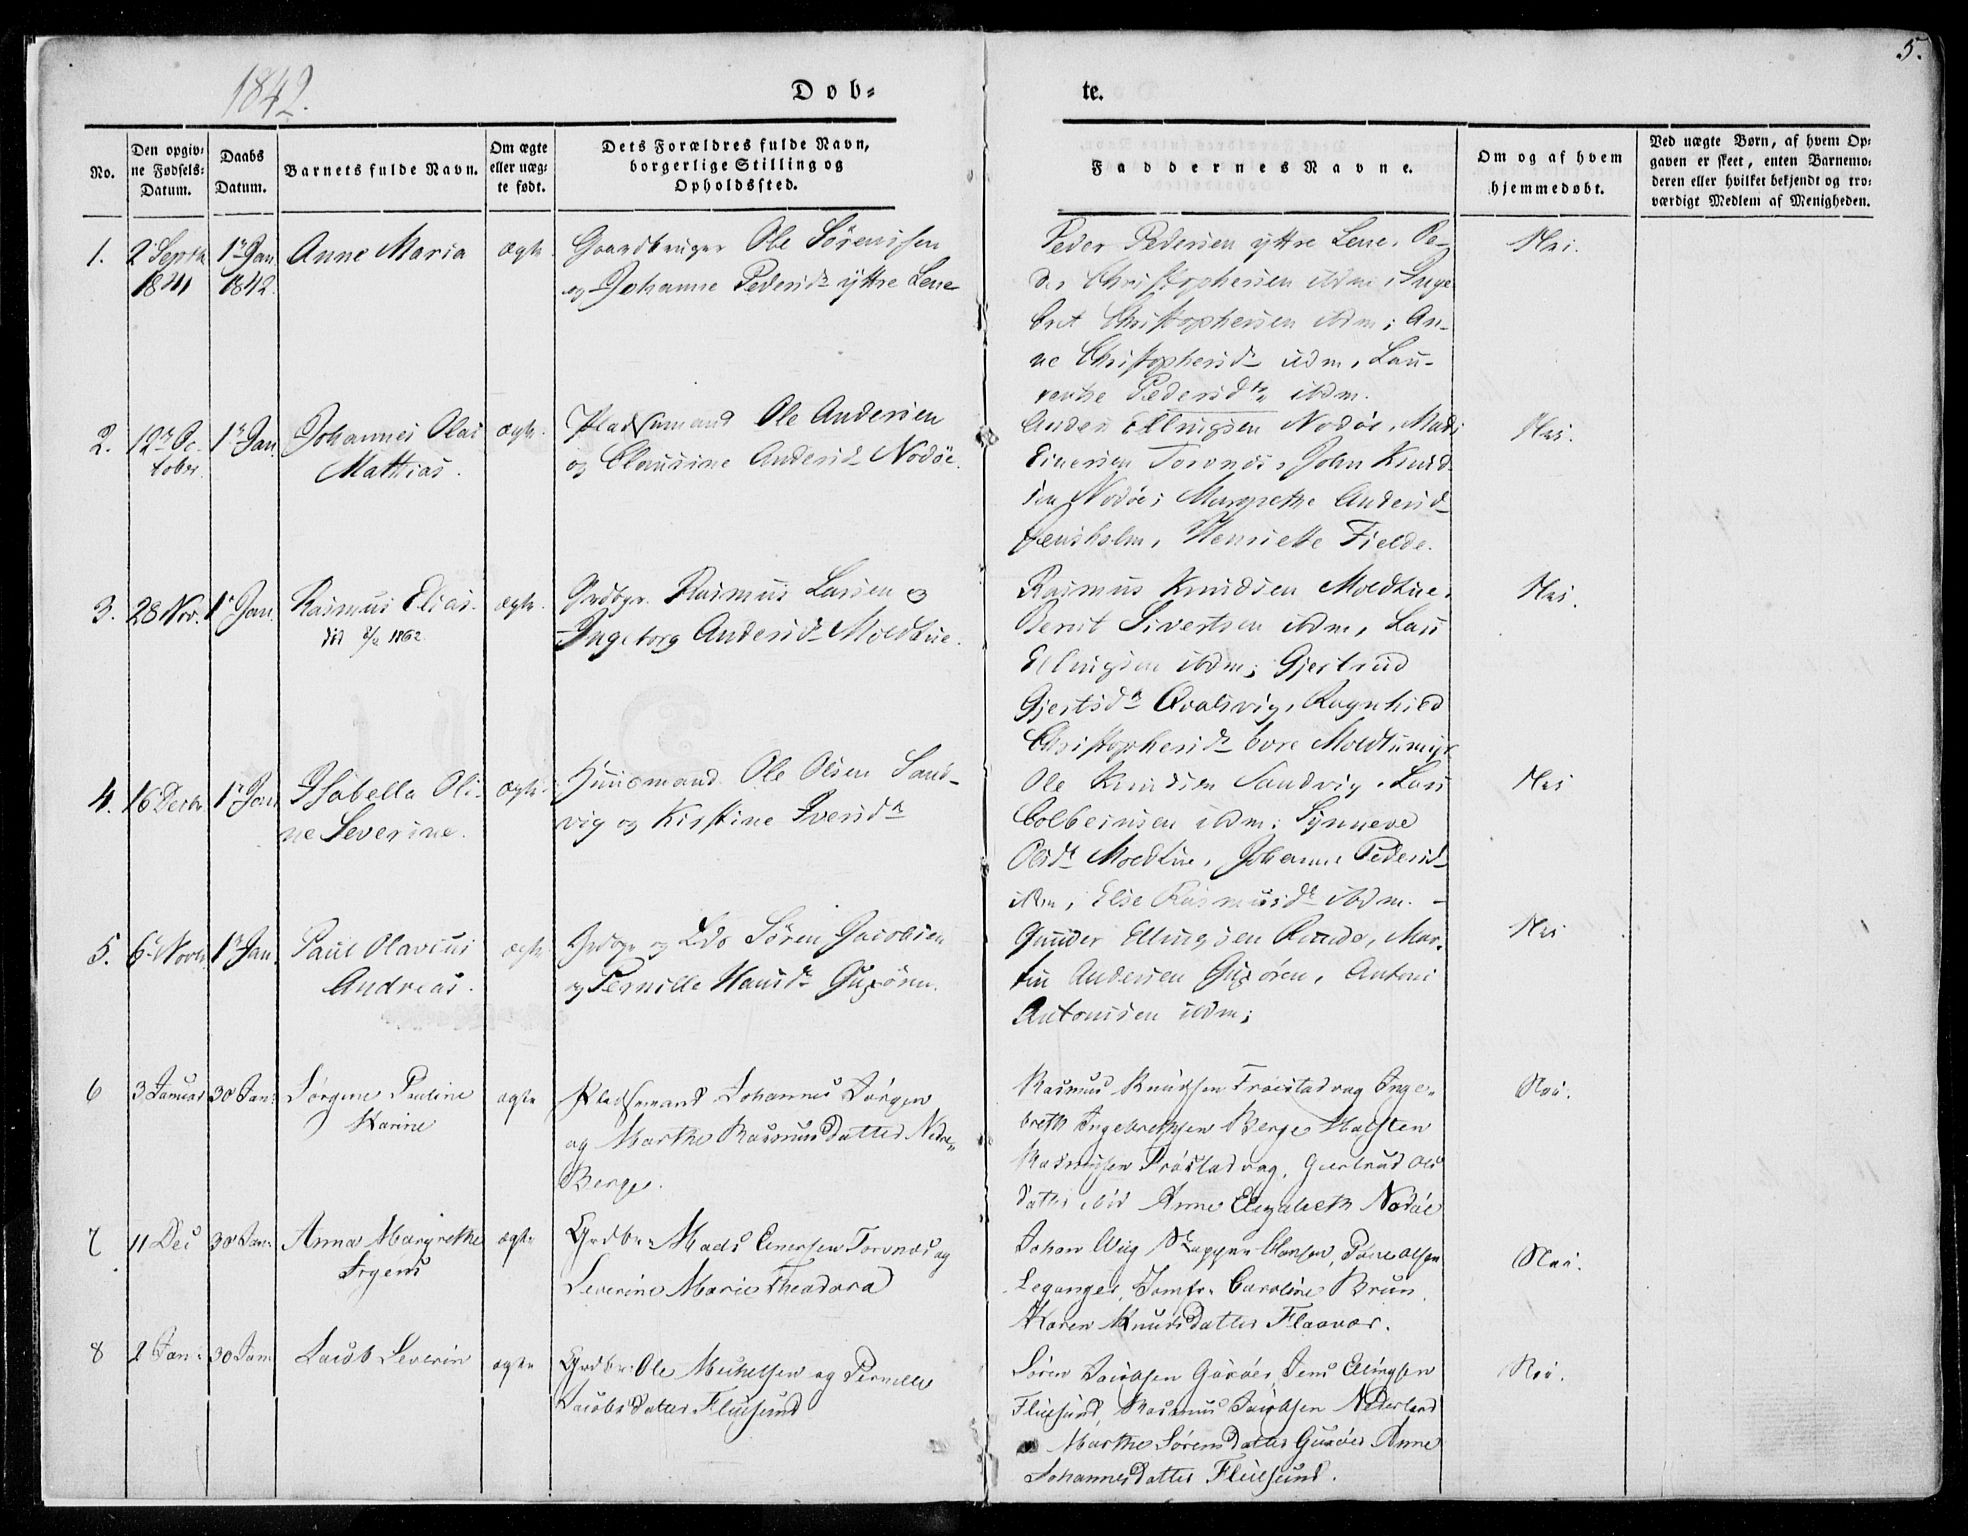 5.
1842.
Dob-
te.
No.
Den opgiv-
ne Fødsels-
Datum.
Daabs
Datum.
Barnets fulde Navn.
Om ægte
eller uæg-
te født.
Dets Forældres fulde Navn,
borgerlige Stilling og
Opholdssted.
Faddernes Navne.
Om og af hvem
hjemmedøbt.
Ved uægte Børn, af hvem Op-
gaven er skeet, enten Barnemo-
deren eller hvilket bekjendt og tro-
værdigt Medlem af Menigheden.
1.
2 Septbr
1841
1ste Jan
1842
Anne Maria
ægte
Gaardbruger Ole Sørensen
og Johanne Pedersdr yttre Lene
Peder Pedersen yttre Lene, Pe-
der Christophersen ibdm, Inge
bret Christophersen ibdm; An-
ne Christophersdr ibdm, Lau-
rentse Pedersdtr ibdm.
Nei.
2.
12te Oc-
tober.
1ste Jan.
Johannes Olai
Mattias.
ægte.
Pladsemand Ole Andersen
og Clausine Andersd Nødøe.
Anders Ellingsen Nodøe, Mads
Einersen Torvnæs, John Knud
sen Nodøe; Margrethe Andersd
Jensholm, Henriette Fielde.
Nei.
3.
28 Nov.
1ste Jan.
Rasmus Elias.
ægte.
Grdbgr. Rasmus Larsen og
Ingeborg Andersdr Moldtue.
Rasmus Knudsen Moldtue,
Bernt Sivertsen ibdm, Lars
Ellingsen ibdm; Gjertrud
Gjertsdr Qvalsvig, Ragnhild
Christophersdr Moldtumyr
Nei.
4.
16 Decbr
1ste Jan
Isabella Oli-
ne Severine.
ægte
Huusmand Ole Olsen Sand-
vig og Kirstine Iversdr
Ole Knudsen Sandvig, Lars
Colbeinsen ibdm; Synneve
Olsdr Moldtue, Johanne Pedersd
ibdm, Else Rasmusdr ibdm. -
Nei
5.
6te Novbr
1ste Jan.
Paul Olavius
Andreas.
ægte
Grdbgr og Søren Jacobsen
og Pernille Hansdr Guxøren.
Gunder Ellingsen Runde, Mar-
tin Andersen Guxøren, Antoni
Antonisen ibdm;
Nei
6
3 Januar
30 Jan:
Jørgine Pauline
Karine
ægte
Pladsemand Johannes Jørgen
og Marthe Rasmusdatter Nedre-
Berge.
Rasmus Knudsen Frøistadvag Inge-
breth Ingebrethsen Berge Halsten
Rasmusen Frøistadvag, Gertrud Ols
datter ibid Anne Elizabeth Nodøe
Nei.
7
11 Dec
30 Jan:
Anna Margrethe
Irgens
ægte
Grdbr: Mads Einersen Torvnæs og
Severine Marie Theodora
Johan Wiig Hansen, Povel Olsen
Leganger, Jomfr. Caroline Brun
Karen Knudsdatter Flaavær.
Nei.
8
2 Jan:
30 Jan
Jacob Severin
ægte
Grdbr. Ole Mickelsen og Pernille
Jacobsdatter Fluesund
Søren Jacobsen Gurøes, Jens Ellingsen
Fluesund, Rasmus Jacobsen Nederland
Marthe Sørensdatter Gurøes Anne
Johannesdatter Fluesund.
Nei.